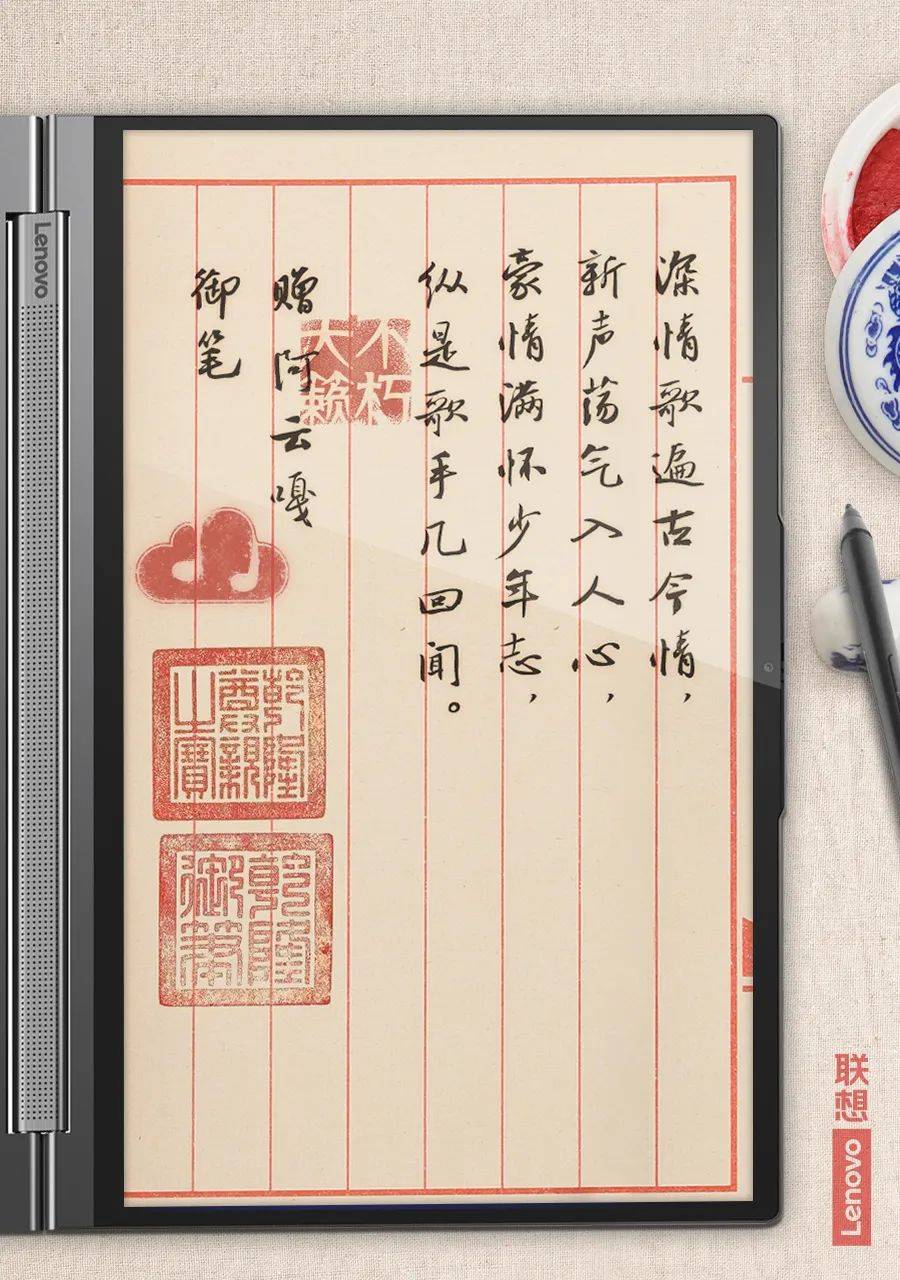 深情歌遍古今情，
新声荡气入人心，
豪情满怀少年志，
纵是歌手几回闻。
赠阿云嘎
御笔
不朽
天籁
乾隆
御笔
Lenovo
联想
Lenovo